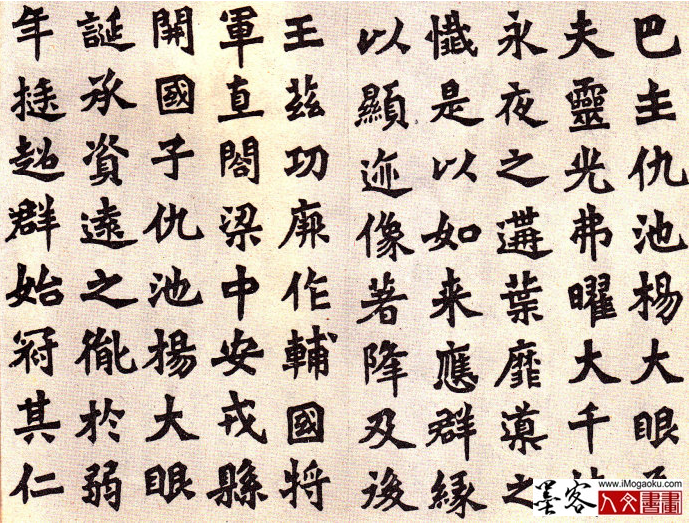 巴主仇池楊大眼
夫靈光弗曜大千
永夜之遘葉靡導之
懺是以如来應群緣
以顯迹像著降及後
王茲功厥作輔國將
軍直閤梁中安戎縣
開國子仇池楊大眼
誕承資遠之胤於弱
年挺超群始冠其仁
墨客
www.iMogaoku.com
人文書畫